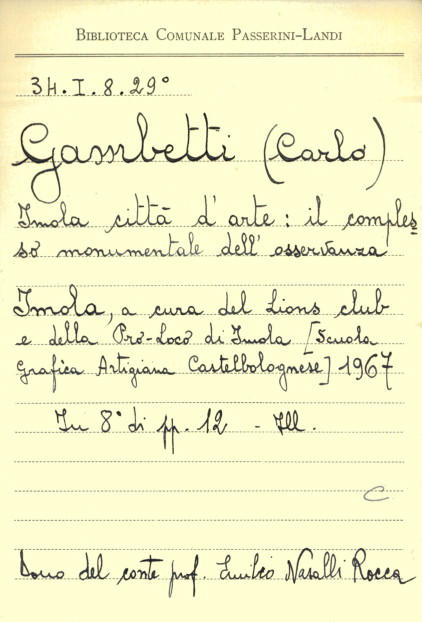 BIBLIOTECA COMUNALE PASSERINI-LANDI
34.I.8.29°
Gambetti (Carlo)
Imola città d'arte: il comples
so monumentale dell'osservanza
Imola, a cura del Lions club
e della Pro-Loco di Imola [Scuola
Grafica Artigiana Castelbolognese] 1967
In 8° di pp. 12 - Ill.
C
Dono del conte prof. Emilio Nasalli Rocca